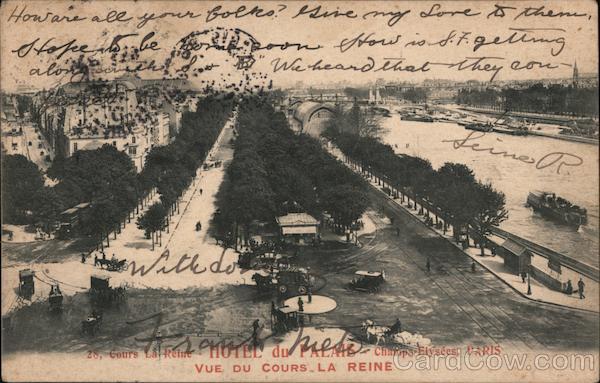 How are all your folks? Give my Love to them.
Hope to be home soon How is S.F. getting
along We heard that they con-
Seine R.
With love
Frank
28, Cours La Reine - HOTEL du PALAIS - Champs-Elysées, PARIS
VUE DU COURS LA REINE
CardCow.com